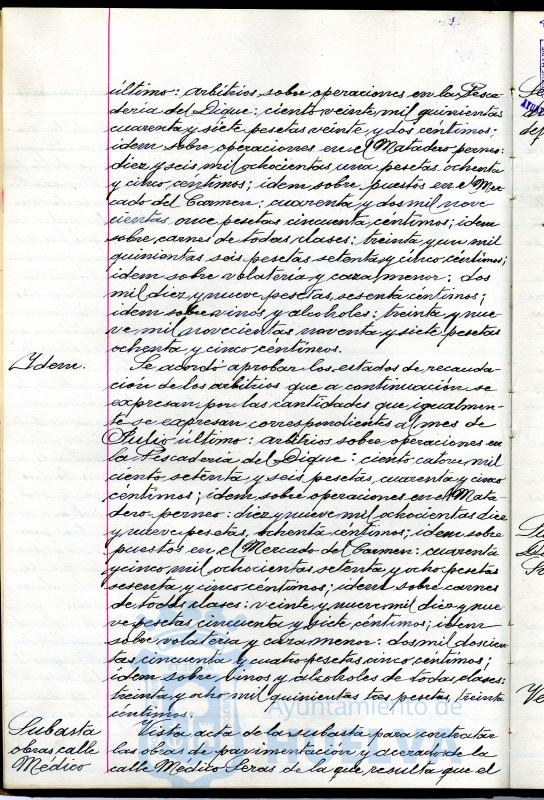 último: arbitrios sobre operaciones en la Pesca-
dería del Dique: ciento veinte mil quinientas
cuarenta y siete pesetas veinte y dos céntimos;
idem sobre operaciones en el Matadero perneo:
diez y seis mil ochocientas una pesetas ochenta
y cinco céntimos; idem sobre puestos en el Mer-
cado del Carmen: cuarenta y dos mil nove
cientas once pesetas cincuenta céntimos; idem
sobre carnes de todas clases: treinta y un mil
quinientas seis pesetas setenta y cinco céntimos;
idem sobre volatería y caza menor: dos
mil diez y nueve pesetas, sesenta céntimos;
idem sobre vinos y alcoholes: treinta y nue-
ve mil novecientas noventa y siete pesetas
ochenta y cinco céntimos.
Idem.
Se acordó aprobar los estados de recauda-
ción de los arbitrios que a continuación se
expresan por las cantidades que igualmen-
te se expresan correspondientes al mes de
Julio último: arbitrios sobre operaciones en
la Pescadería del Dique: ciento catorce mil
ciento setenta y seis pesetas, cuarenta y cinco
céntimos; idem sobre operaciones en el Mata-
dero perneo: diez y nueve mil ochocientas diez
y nueve pesetas, ochenta céntimos; idem sobre
puestos en el Mercado del Carmen: cuarenta
y cinco mil ochocientas setenta y ocho pesetas
sesenta y cinco céntimos; idem sobre carnes
de todas clases: veinte y nueve mil diez y nue
ve pesetas cincuenta y siete céntimos; idem
sobre volatería y caza menor: dos mil doscien
tas cincuenta y cuatro pesetas cinco céntimos;
idem sobre vinos y alcoholes de todas clases:
treinta y ocho mil quinientas tres pesetas, treinta
céntimos.
Subasta
obras calle
Médico
Vista acta de la subasta para contratar
las obras de pavimentación y acerado de la
calle Médico Seras de la que resulta que el
Ayuntamiento de
HUELVA